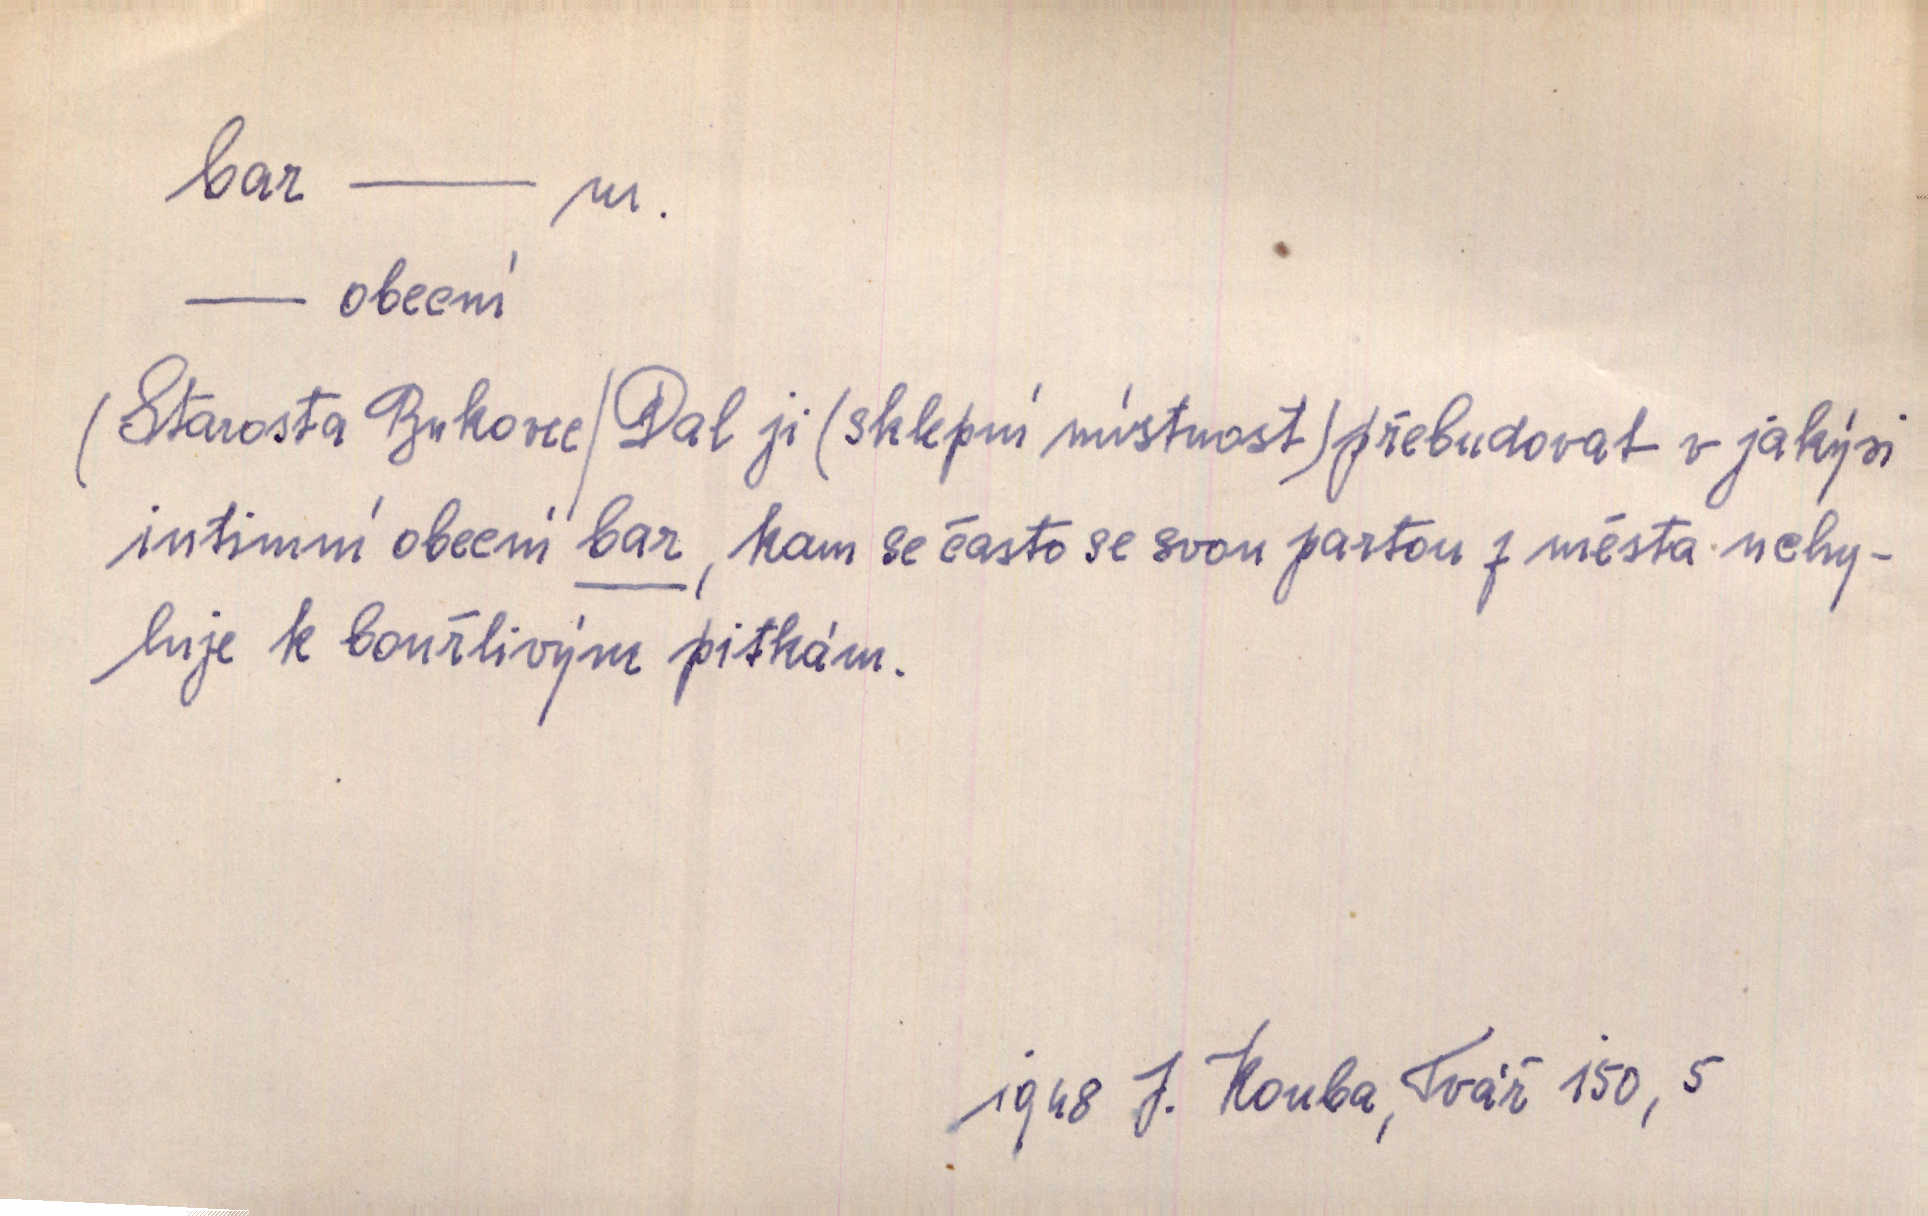 bar — m.
— obecní
(Starosta Bukovec/ Dal ji (sklepní místnost) přebudovat v jakýsi
intimní obecní bar, kam se často se svou partou z města uchy-
luje k bouřlivým pitkám.
1948 J. Kouba, Tvář 150, 5